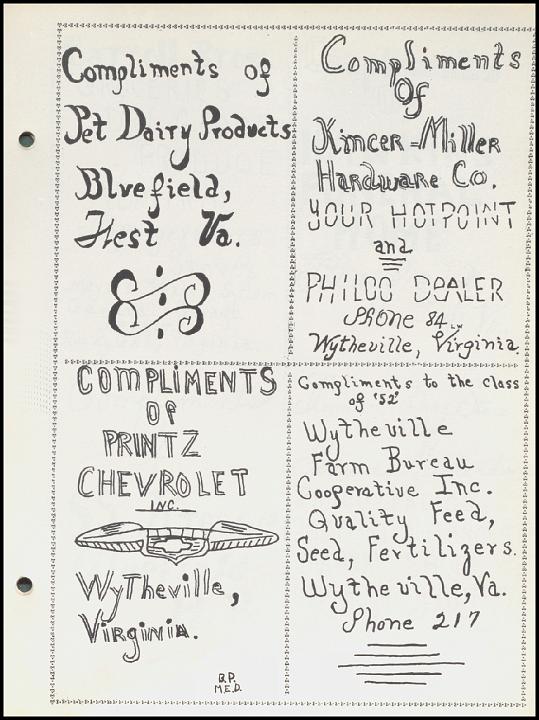 Compliments of
Pet Dairy Products
Bluefield,
West Va.
Compliments
Of
Kincer-Miller
Hardware Co.
YOUR HOTPOINT
and
PHILCO DEALER
Phone 84
Wytheville, Virginia.
COMPLIMENTS
OF
PRINTZ
CHEVROLET
INC.
WyTheville,
Virginia.
B.P.
M.E.D.
Compliments to the class
of '52'
Wytheville
Farm Bureau
Cooperative Inc.
Quality Feed,
Seed, Fertilizers.
Wytheville, Va.
Phone 217